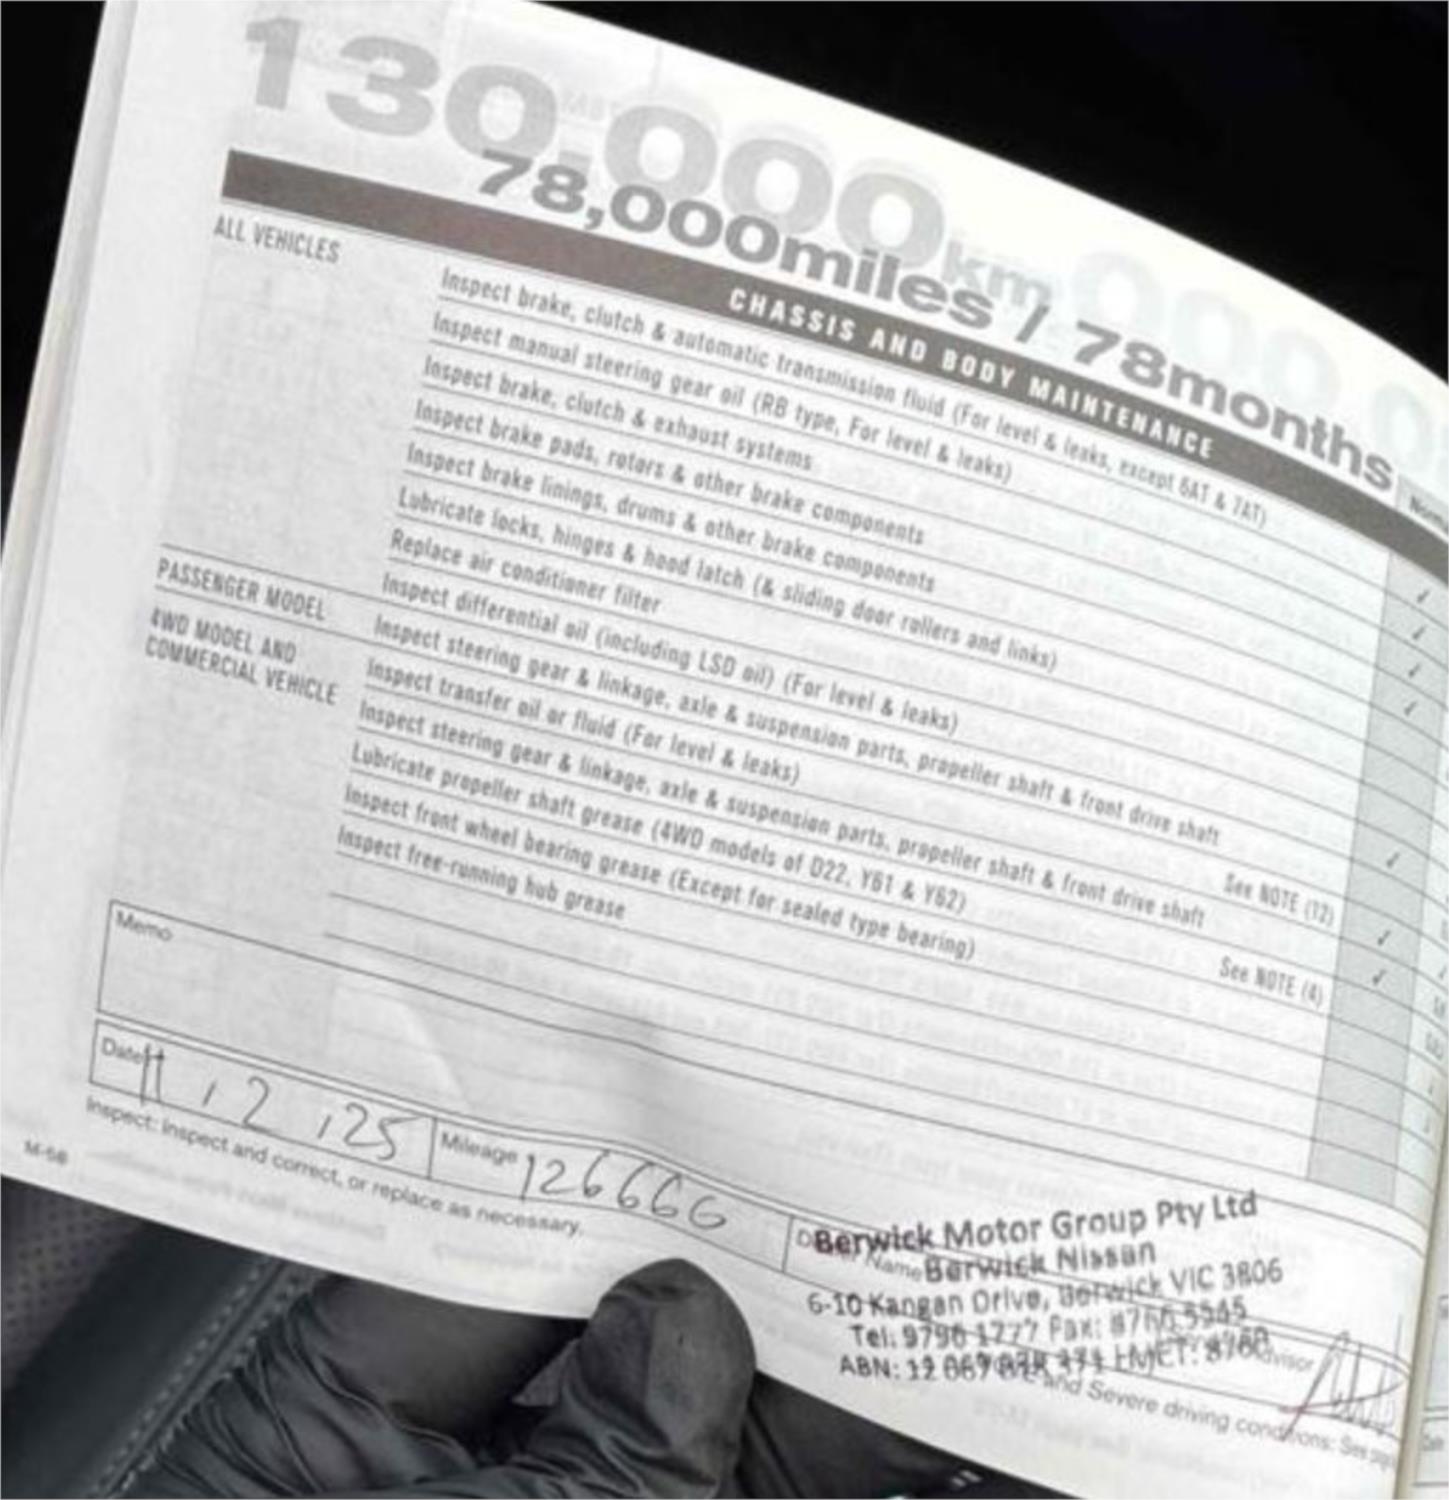 130,000km
78,000miles / 78months
CHASSIS AND BODY MAINTENANCE
ALL VEHICLES
Inspect brake, clutch & automatic transmission fluid (For level & leaks, except 6AT & 7AT)
Inspect manual steering gear oil (RB type, For level & leaks)
Inspect brake, clutch & exhaust systems
Inspect brake pads, rotors & other brake components
Inspect brake linings, drums & other brake components
Lubricate locks, hinges & hood latch (& sliding door rollers and links)
Replace air conditioner filter
Inspect differential oil (including LSD oil) (For level & leaks)
PASSENGER MODEL
Inspect steering gear & linkage, axle & suspension parts, propeller shaft & front drive shaft
4WD MODEL AND
COMMERCIAL VEHICLE
Inspect transfer oil or fluid (For level & leaks)
See NOTE (12)
Inspect steering gear & linkage, axle & suspension parts, propeller shaft & front drive shaft
Lubricate propeller shaft grease (4WD models of D22, Y61 & Y62)
See NOTE (4)
Inspect front wheel bearing grease (Except for sealed type bearing)
Inspect free-running hub grease
Memo
Date 11 , 2 , 25
Mileage 126666
Name
Berwick Motor Group Pty Ltd
Berwick Nissan
6-10 Kangan Drive, Berwick VIC 3806
Tel: 9796 1777 Fax: 8766 5545
ABN: LMCT: 8760
Inspect: Inspect and correct, or replace as necessary.
and Severe driving conditions: See
M-58